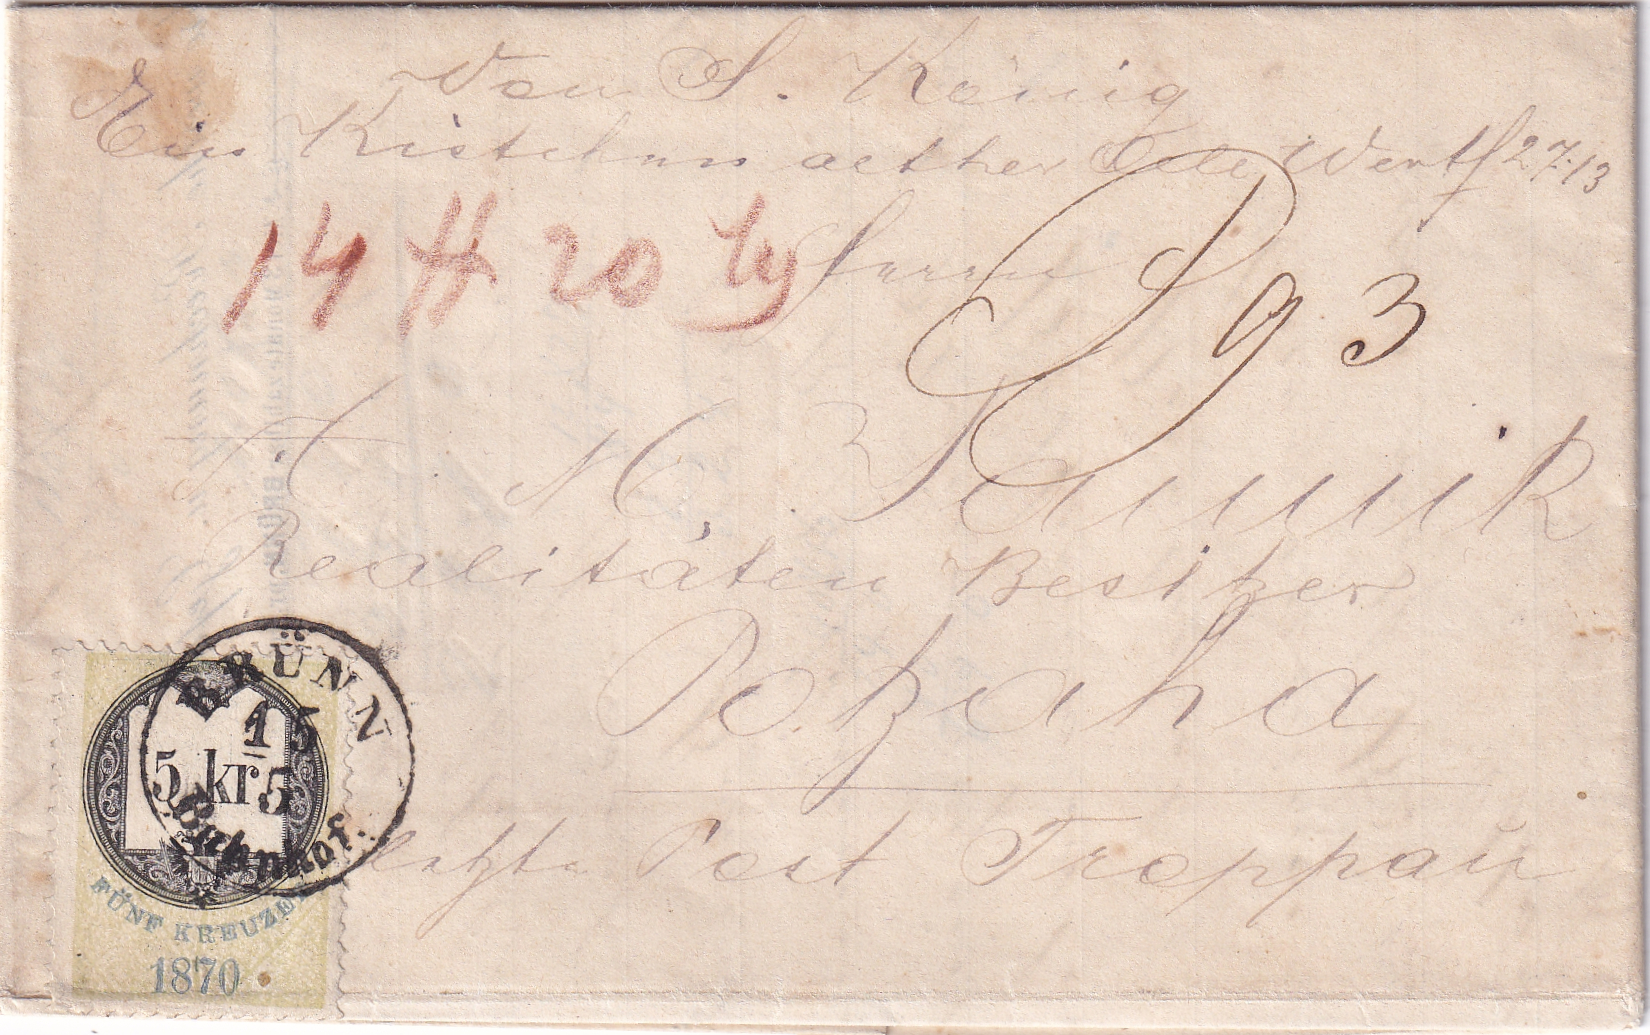 Von S. König
Ein Kistchen aether Oele Wert f 27.13
14 ℔ 20 Lth
Herrn
P 93
A. M.
Realitäten Besitzer
letzte Post Troppau
BRÜNN
15
5
Bahnhof.
5 kr
FÜNF KREUZER
1870